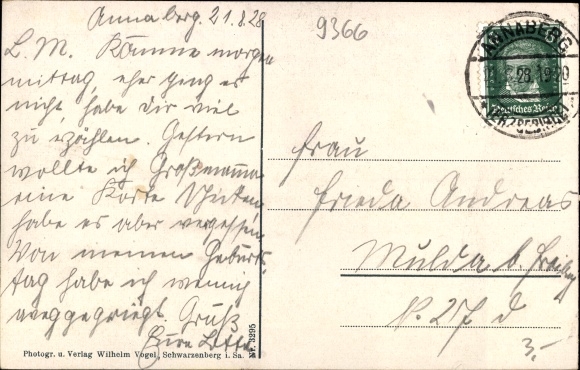 Annaberg. 21.8.28
9366
L. M. Komme morgen
mittag, eher geng es
nicht, habe dir viel
zu erzählen. Gestern
wollte ich Großmama
eine Karte schicken
habe es aber vergessen.
Von meinem Geburts
tag habe ich wenig
Gruß
Eure Lotte
Photogr. u. Verlag Wilhelm Vogel, Schwarzenberg i. Sa.
Nr. 3295
ANNABERG
28
(ERZGEBIRGE)
Deutsches Reich
Frau
Frieda Andreas
Mulda b. Freiberg
N. 27 d
3,-